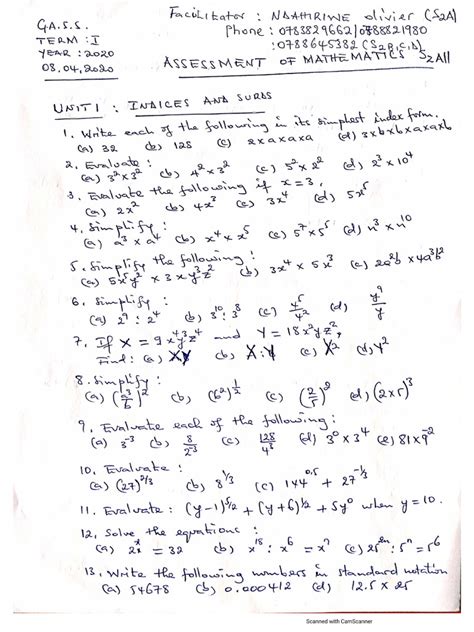 G.A.S.S.
TERM : I
YEAR : 2020
08.04.2020
Facilitator : NDAHIRIWE olivier (S2A)
Phone : 0783829662/0788821980
: 0788645382 (S2B,C,D)
ASSESSMENT OF MATHEMATICS S2All
UNIT1 : INDICES AND SURDS
1. Write each of the following in its simplest index form.
(a) 32 (b) 128 (c) 2xaxaxa (d) 3xbxbxaxaxb
2. Evaluate :
(a) 3²x2² (b) 4²x3² (c) 5²x2² (d) 2³x10⁴
3. Evaluate the following if x = 3,
(a) 2x² (b) 4x³ (c) 3x⁴ (d) x⁵
4. Simplify :
(a) a³xa⁴ (b) x⁴xx⁵ (c) 5⁷x5⁵ (d) n³xn¹⁰
5. Simplify the following :
(a) 5x⁵y² x 3xy³z² (b) 3x⁴ x 5x³ (c) 2a²b x 4a³b²
6. Simplify :
(a) 2⁹ : 2⁴ (b) 3¹⁰ : 3⁸ (c) 4⁵/4² (d) y⁹/y
7. If X = 9x⁴y³z⁴ and Y = 18x²yz²,
Find : (a) XY (b) X:Y (c) X² (d) Y²
8. Simplify :
(a) (a³/b)² (b) (6²)^½ (c) (2/5)² (d) (2x5)³
9. Evaluate each of the following :
(a) 3⁻³ (b) 8/2⁻³ (c) 128/4³ (d) 3⁰x3⁴ (e) 81x9⁻²
10. Evaluate :
(a) (27)^2/3 (b) 8^1/3 (c) 144^0,5 + 27^-1/3
11. Evaluate : (y-1)^5/2 + (y+6)^1/2 + 5y⁰ when y = 10.
12. Solve the equations :
(a) 2ˣ = 32 (b) x¹⁸ : x⁶ = xⁿ (c) 25²ⁿ : 5ⁿ = 5⁶
13. Write the following numbers in standard notation
(a) 54678 (b) 0.000412 (d) 12.5 x 25
Scanned with CamScanner